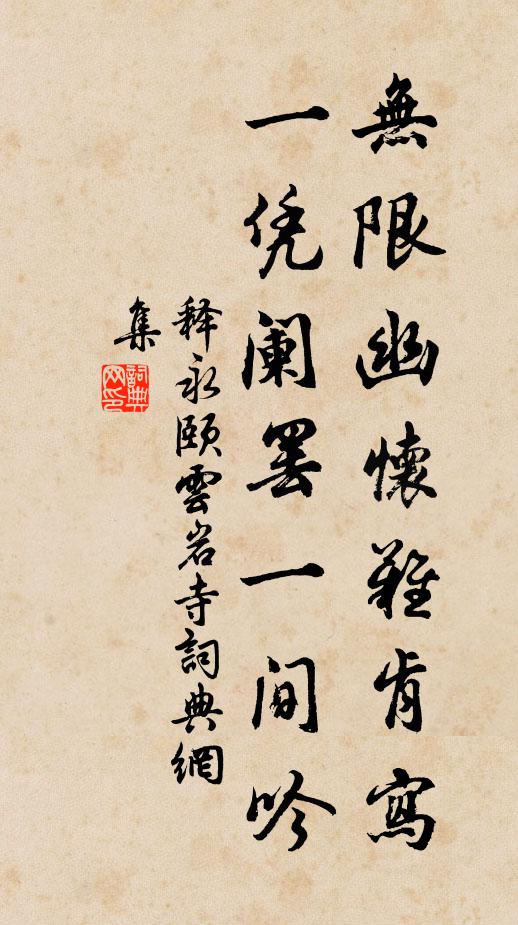 無限幽懷難肯寫
一凭阑罢一间吟
释永颐雲岩寺詞典網
集
詞典网印